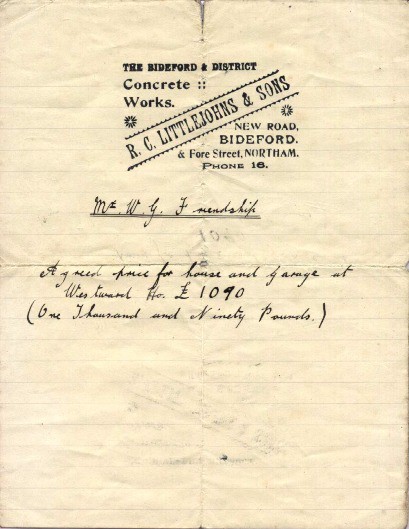 THE BIDEFORD & DISTRICT
Concrete ::
Works.
R. C. LITTLEJOHNS & SONS
NEW ROAD,
BIDEFORD.
& Fore Street, NORTHAM.
PHONE 16.
Mr. W. G. Friendship
Agreed price for house and Garage at
Westward Ho. £1090
(One Thousand and Ninety Pounds.)